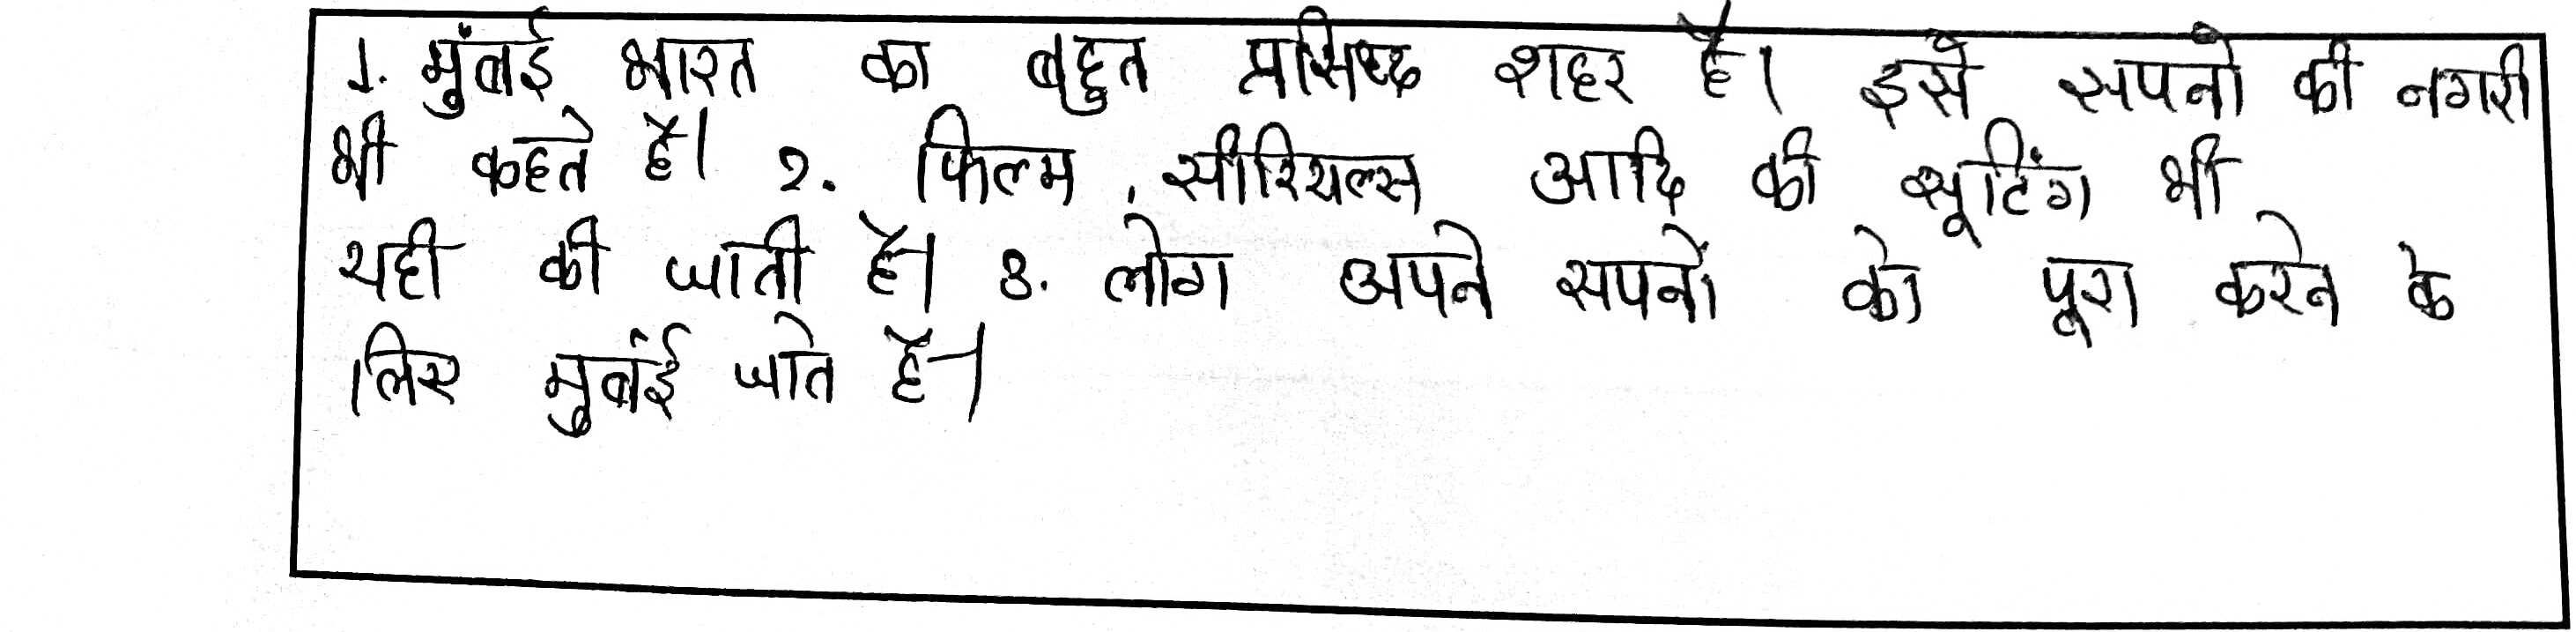 1. मुंबई भारत का बहुत प्रसिध्द शहर है। इसे सपनो की नगरी
भी कहते है। 2. फिल्म, सीरियल्स आदि की शूटिंग भी
यही की जाती है। 3. लोग अपने सपनों को पूरा करने के
लिए मुबंई जाते है।